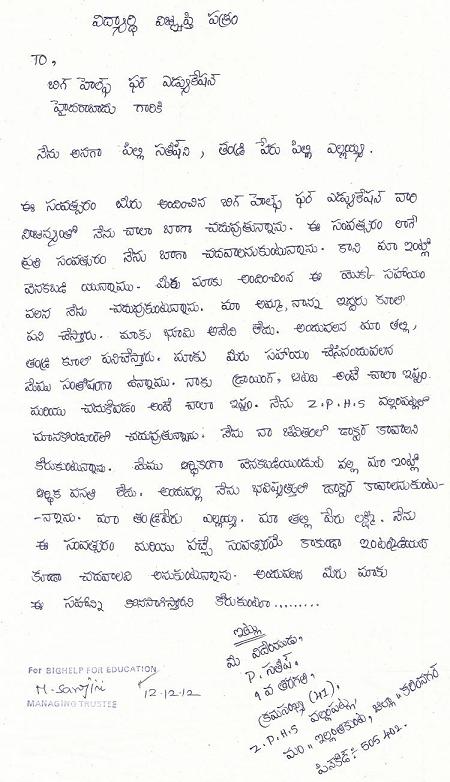 విద్యార్థి విజ్ఞప్తి పత్రం
TO,
బిగ్ హెల్ప్ ఫర్ ఎడ్యుకేషన్
హైదరాబాదు గారికి
నేను అనగా పిల్లి సతీష్ ని, తండ్రి పేరు పిల్లి ఎల్లయ్య.
ఈ సంవత్సరం మీరు అందించిన బిగ్ హెల్ప్ ఫర్ ఎడ్యుకేషన్ వారి
నేను చాలా బాగా చదువుతున్నాను. ఈ సంవత్సరం లాగే
ప్రతి సంవత్సరం నేను బాగా చదవాలనుకుంటున్నాను. కాని మా ఇంట్లో
వెనకబడి యున్నాము. మీరు మాకు అందించిన ఈ యొక్క సహాయం
వలన నేను చదువుకుంటున్నాను. మా అమ్మ, నాన్న ఇద్దరు కూలి
పని చేస్తారు. మాకు భూమి అనేది లేదు. అందువలన మా తల్లి,
తండ్రి కూలి పనిచేస్తారు. మాకు మీరు సహాయం చేసినందువలన
మేము సంతోషంగా ఉన్నాము. నాకు డ్రాయింగ్, ఆటలు అంటే చాలా ఇష్టం.
మరియు చదుకోవడం అంటే చాలా ఇష్టం. నేను Z.P.H.S వల్లంపట్లలో
చదువుతున్నాను. నేను నా జీవితంలో డాక్టర్ కావాలని
కోరుకుంటున్నాను. మేము ఆర్థికంగా వెనకబడియుండుట వల్ల మా ఇంట్లో
ఆర్థిక వసతి లేదు. అందువల్ల నేను భవిష్యత్తులో డాక్టర్ కావాలనుకుంటు-
-న్నాను. మా తండ్రిపేరు ఎల్లయ్య. మా తల్లి పేరు లక్ష్మి. నేను
ఈ సంవత్సరం మరియు వచ్చే సంవత్సరమే కాకుండా ఇంటర్మీడియట్
కూడా చదవాలని అనుకుంటున్నాను. అందువలన మీరు మాకు
ఈ సహాన్ని కొనసాగిస్తారని కోరుకుంటూ.........
ఇట్లు
మీ విదేయుడు,
P. సతీష్.
9 వ తరగతి,
క్రమసంఖ్య (41),
Z.P.H.S వల్లంపట్ల,
మం" ఇల్లంతకుంట, జిల్లా" కరీంనగర్
పిన్ కోడ్ :- 505 402.
For BIGHELP FOR EDUCATION
M. Sarojini
12-12-12
MANAGING TRUSTEE